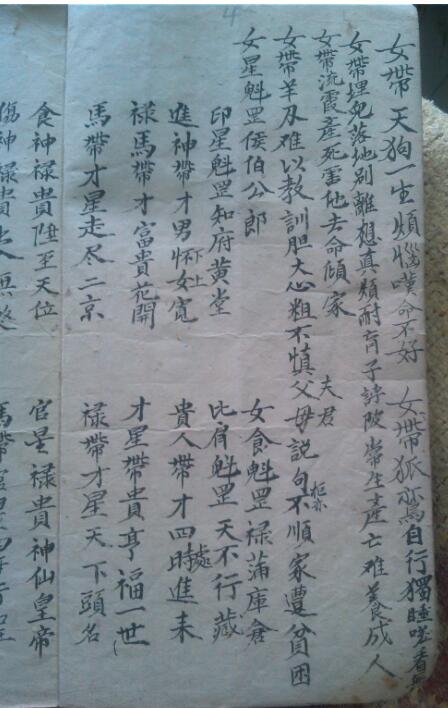 女帶天狗一生煩惱嘆命不好 女帶狐鸞自行獨睡嗟看
女帶埋兒落地別離想真煩耐育子詳陂常生產亡难養成人
女帶流霞產死害他去命傾家
女帶羊刃难以教訓胆大心粗不慎父母説句不順家遭貧困
夫君
女星魁罡侯伯公郎 女食魁罡禄蒲庫倉
印星魁罡知府黄堂 比肩魁罡天不行藏
進神帶才男怀女寬 貴人帶才四時進来
下上
處
禄馬帶才富貴花開 才星帶貴亨福一世
馬帶才星走尽二京 禄帶才星天下頭名
食神禄貴陞至天位 官星禄貴神仙皇帝
傷神禄貴 馬帶官星
4